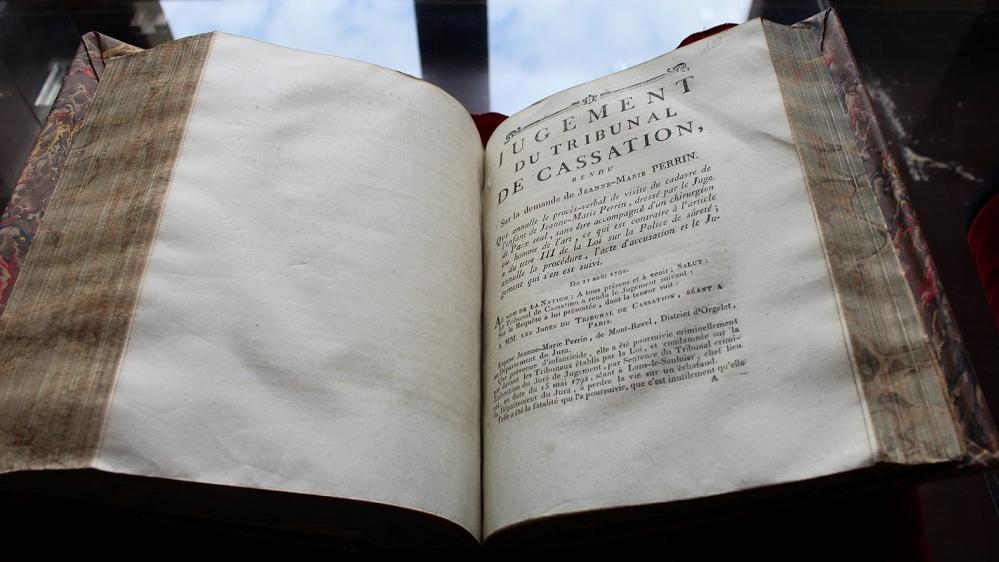 JUGEMENT
DU TRIBUNAL
DE CASSATION,
RENDU
Sur la demande de JEANNE-MARIE PERRIN.
Qui annulle le procès-verbal de visite du cadavre de
l'enfant de Jeanne-Marie Perrin, dressé par le Juge
de Paix seul, sans être accompagné d'un chirurgien
ou homme de l'art, ce qui est contraire à l'article
du titre III de la Loi sur la Police de sûreté;
annulle la procédure, l'acte d'accusation et le Ju-
gement qui s'en est suivi.
Du 11 août 1792.
AU NOM DE LA NATION: A tous présens et à venir; SALUT:
Le Tribunal de Cassation a rendu le Jugement suivant:
Sur la Requête à lui présentée, dont la teneur suit:
A MM. LES JUGES DU TRIBUNAL DE CASSATION, SÉANT A
PARIS.
Expose Jeanne-Marie Perrin, de Mont-Revel, District d'Orgelet,
Département du Jura.
Que prévenue d'infanticide, elle a été poursuivie criminellement
devant les Tribunaux établis par la Loi, et condamnée sur la
déclaration du Juré de Jugement, par Sentence du Tribunal crimi-
nel, en date du 15 mai 1792, séant à Lons-le-Saulnier, chef lieu
du Département du Jura, à perdre la vie sur un échafaud.
Telle a été la fatalité qui l'a poursuivie, que c'est inutilement qu'elle
A